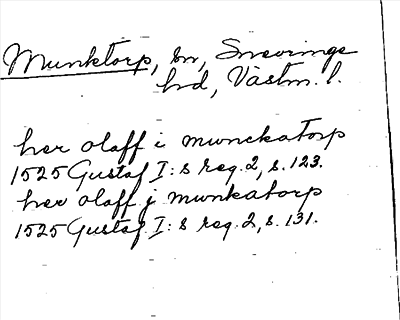 Munktorp, sn, Snevringe
hd, Västm. l.
her olaff i munckatorp
1525 Gustaf I:s reg. 2, s. 123.
her olaff j munkatorp
1525 Gustaf I:s reg. 2, s. 131.